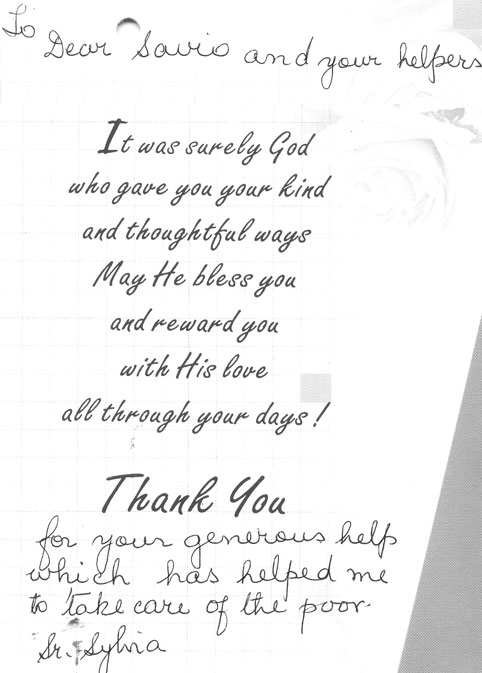 To
Dear Savio and your helpers
It was surely God
who gave you your kind
and thoughtful ways
May He bless you
and reward you
with His love
all through your days!
Thank You
for your generous help
which has helped me
to take care of the poor.
Sr. Sylvia